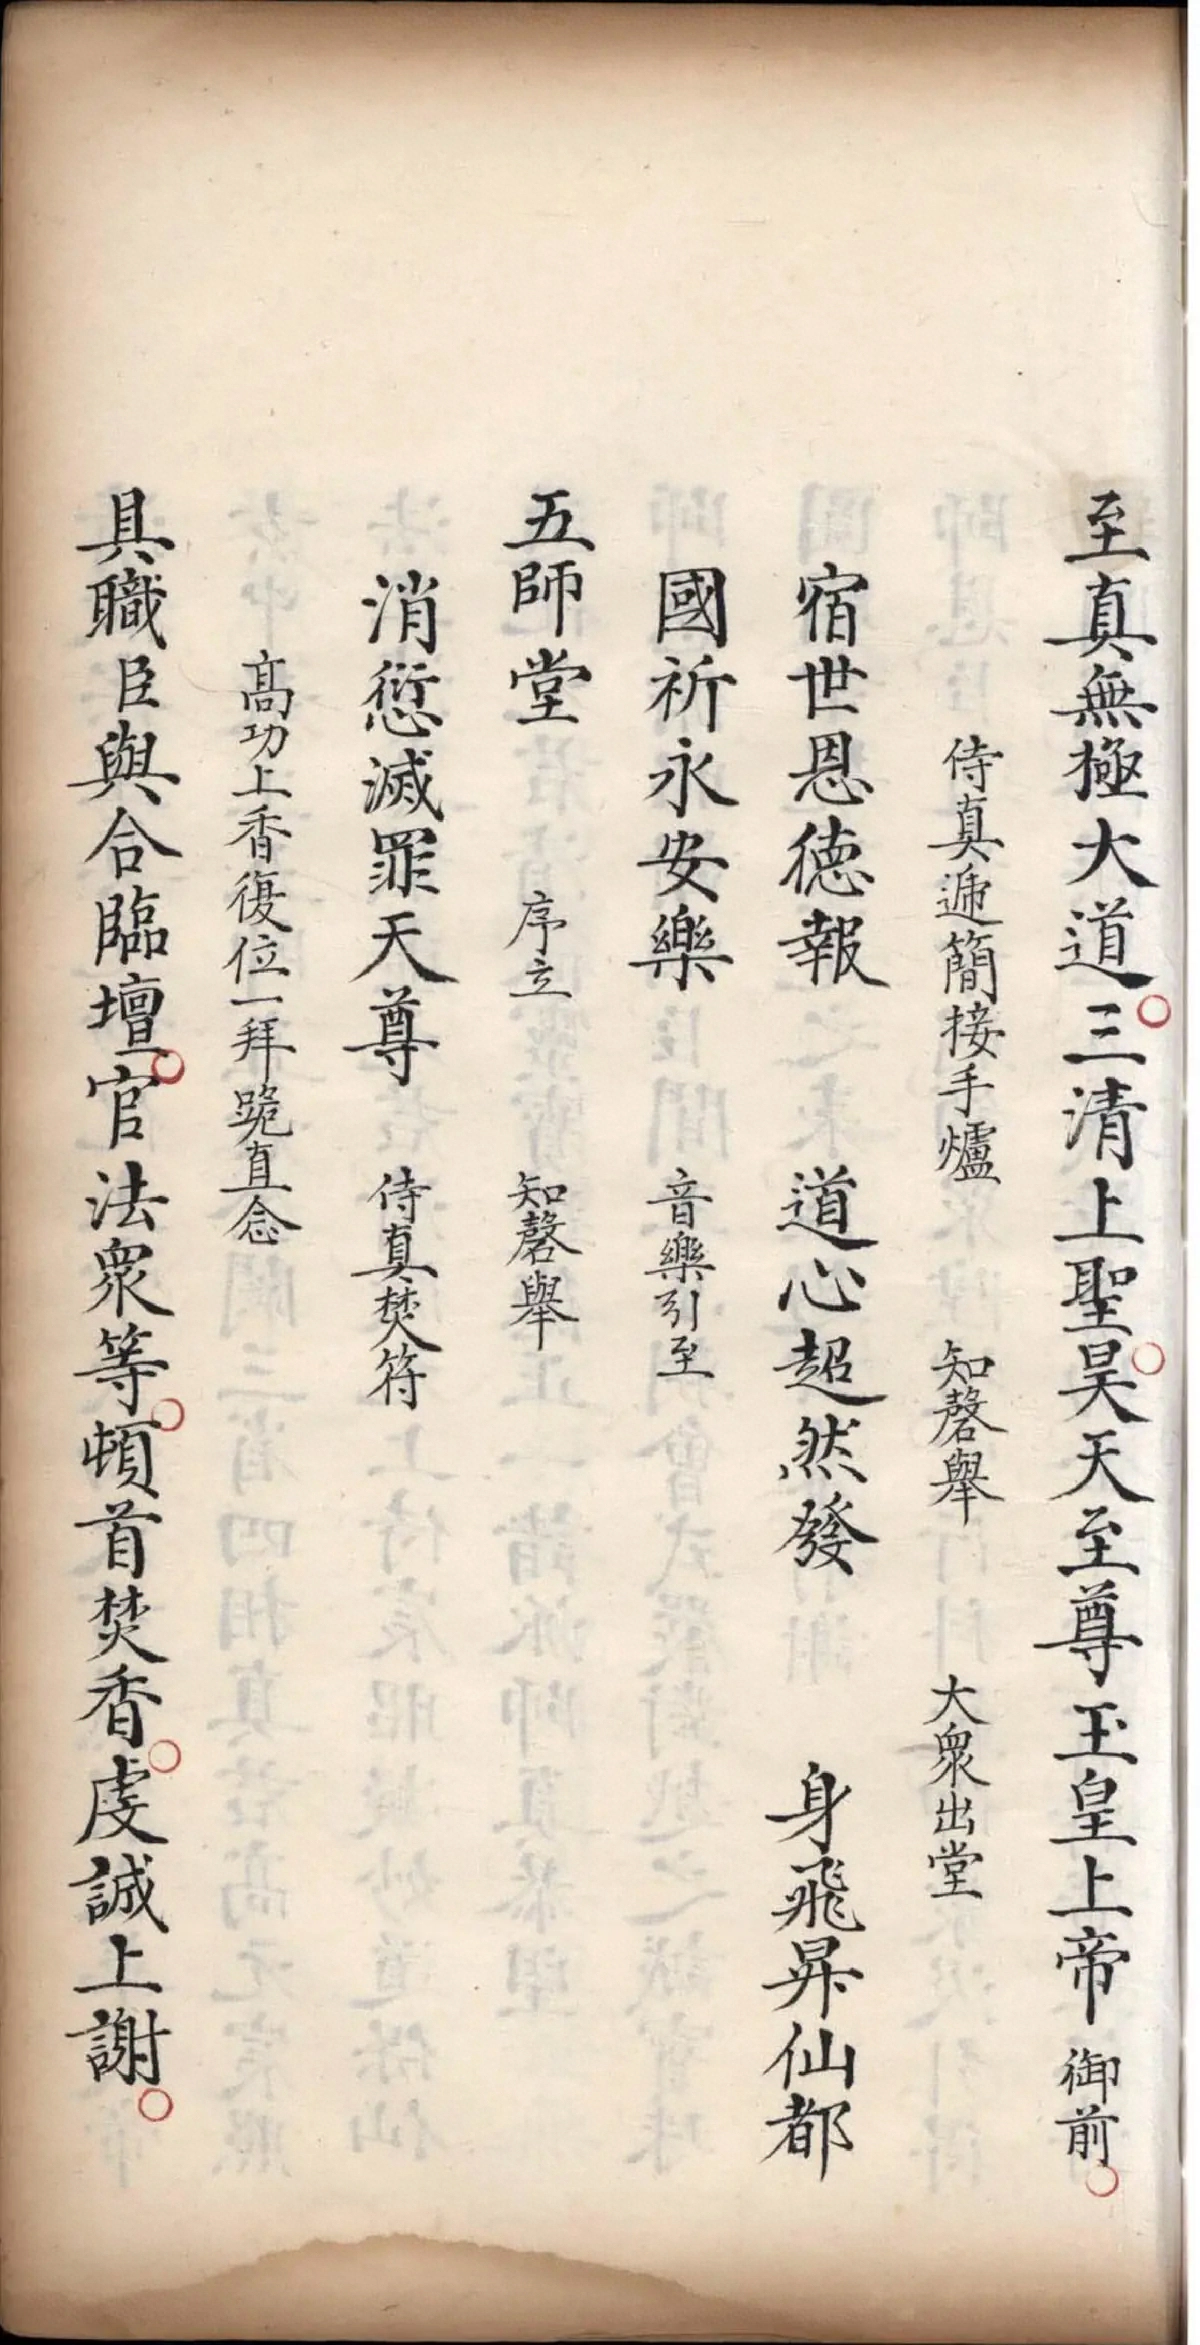 至真無極大道三清上聖昊天至尊玉皇上帝御前
侍真遞簡接手爐 知磬舉 大眾出堂
宿世恩德報 道心超然發 身飛昇仙都
國祈永安樂 音樂引至
五師堂 序立 知磬舉
消愆滅罪天尊 侍真焚符
高功上香復位一拜跪直念
具職臣與合臨壇官法衆等頓首焚香虔誠上謝